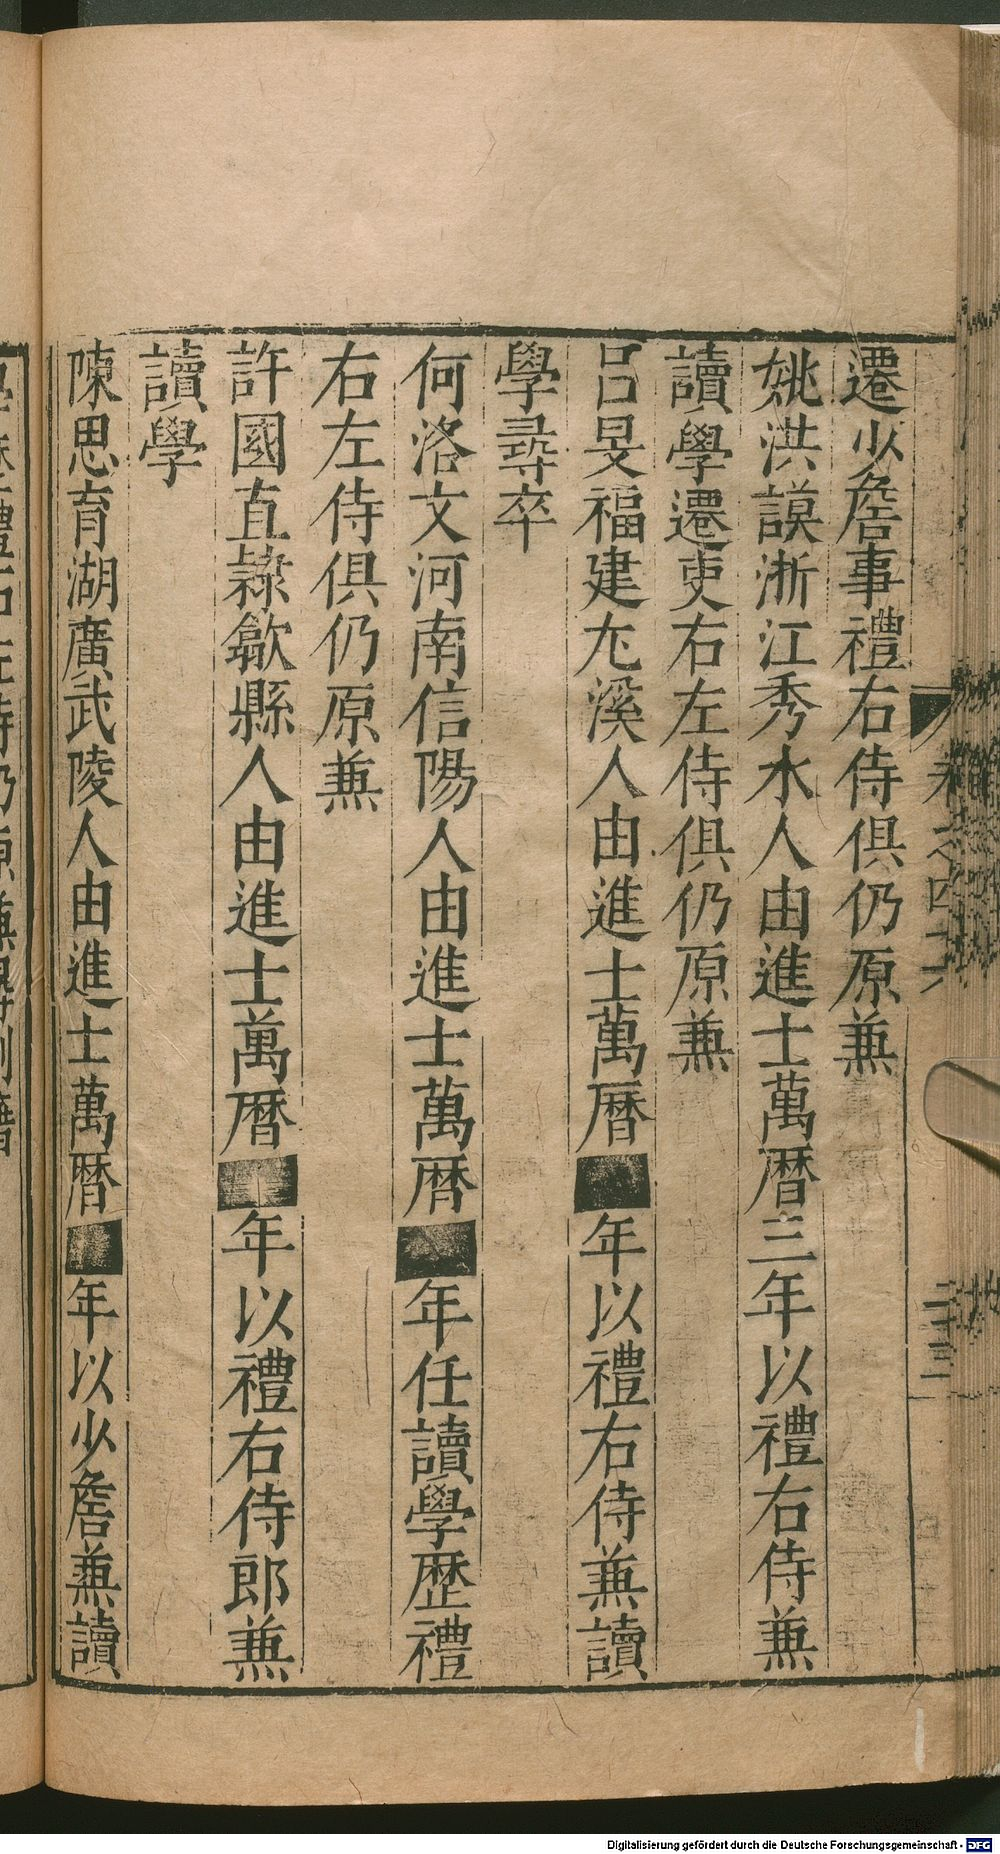 遷少詹事禮右侍俱仍原兼
姚洪謨浙江秀水人由進士萬曆三年以禮右侍兼
讀學遷吏右左侍俱仍原兼
呂旻福建尤溪人由進士萬曆■年以禮右侍兼讀
學尋卒
何洛文河南信陽人由進士萬曆■年任讀學歷禮
右左侍俱仍原兼
許國直隸歙縣人由進士萬曆■年以禮右侍郎兼
讀學
陳思育湖廣武陵人由進士萬曆■年以少詹兼讀
Digitalisierung gefördert durch die Deutsche Forschungsgemeinschaft - DFG